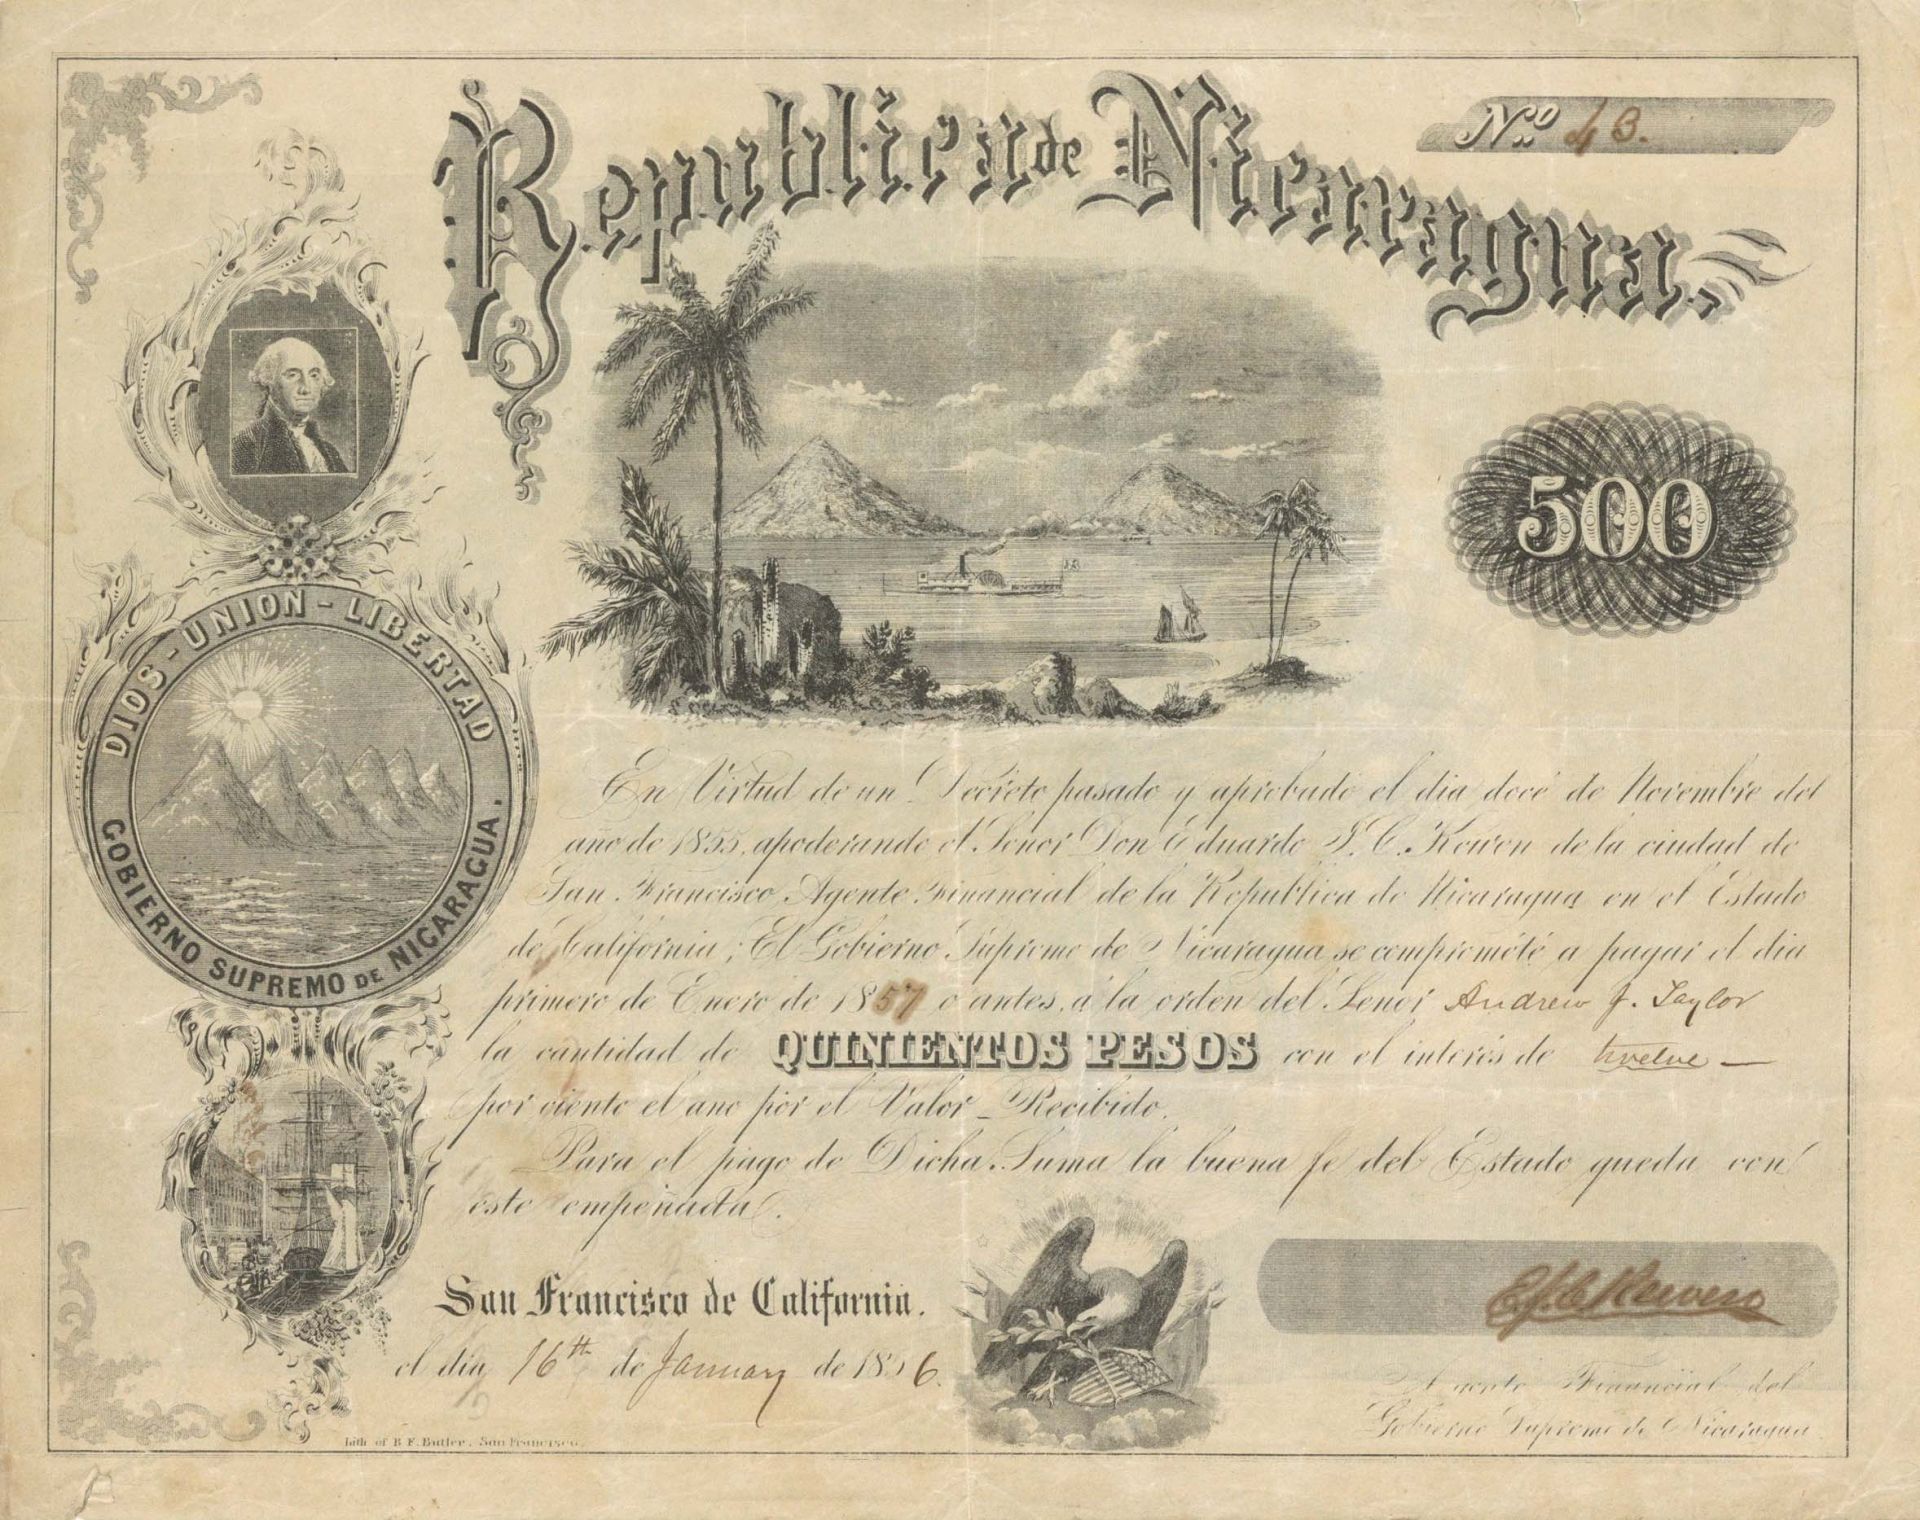 Republica de Nicaragua.
Nº 43.
500
DIOS - UNION - LIBERTAD
GOBIERNO SUPREMO DE NICARAGUA.
En Virtud de un Decreto pasado y aprobado el dia doce de Novembre del
año de 1855, apoderando el Senor Don Eduardo J. C. Kewen de la ciudad de
San Francisco Agente Financial de la Republica de Nicaragua en el Estado
de California; El Gobierno Supremo de Nicaragua se compromete a pagar el dia
primero de Enero de 1857 o antes, a la orden del Senor Andrew J. Taylor
la cantidad de QUINIENTOS PESOS con el interés de twelve —
por ciento el ano por el Valor - Recibido.
Para el pago de Dicha Suma la buena fe del Estado queda con
esto empeñada.
San Francisco de California.
el dia 16th de January de 1856.
E. J. C. Kewen
Agente Financial del
Gobierno Supremo de Nicaragua
Lith of B. F. Butler, San Francisco.